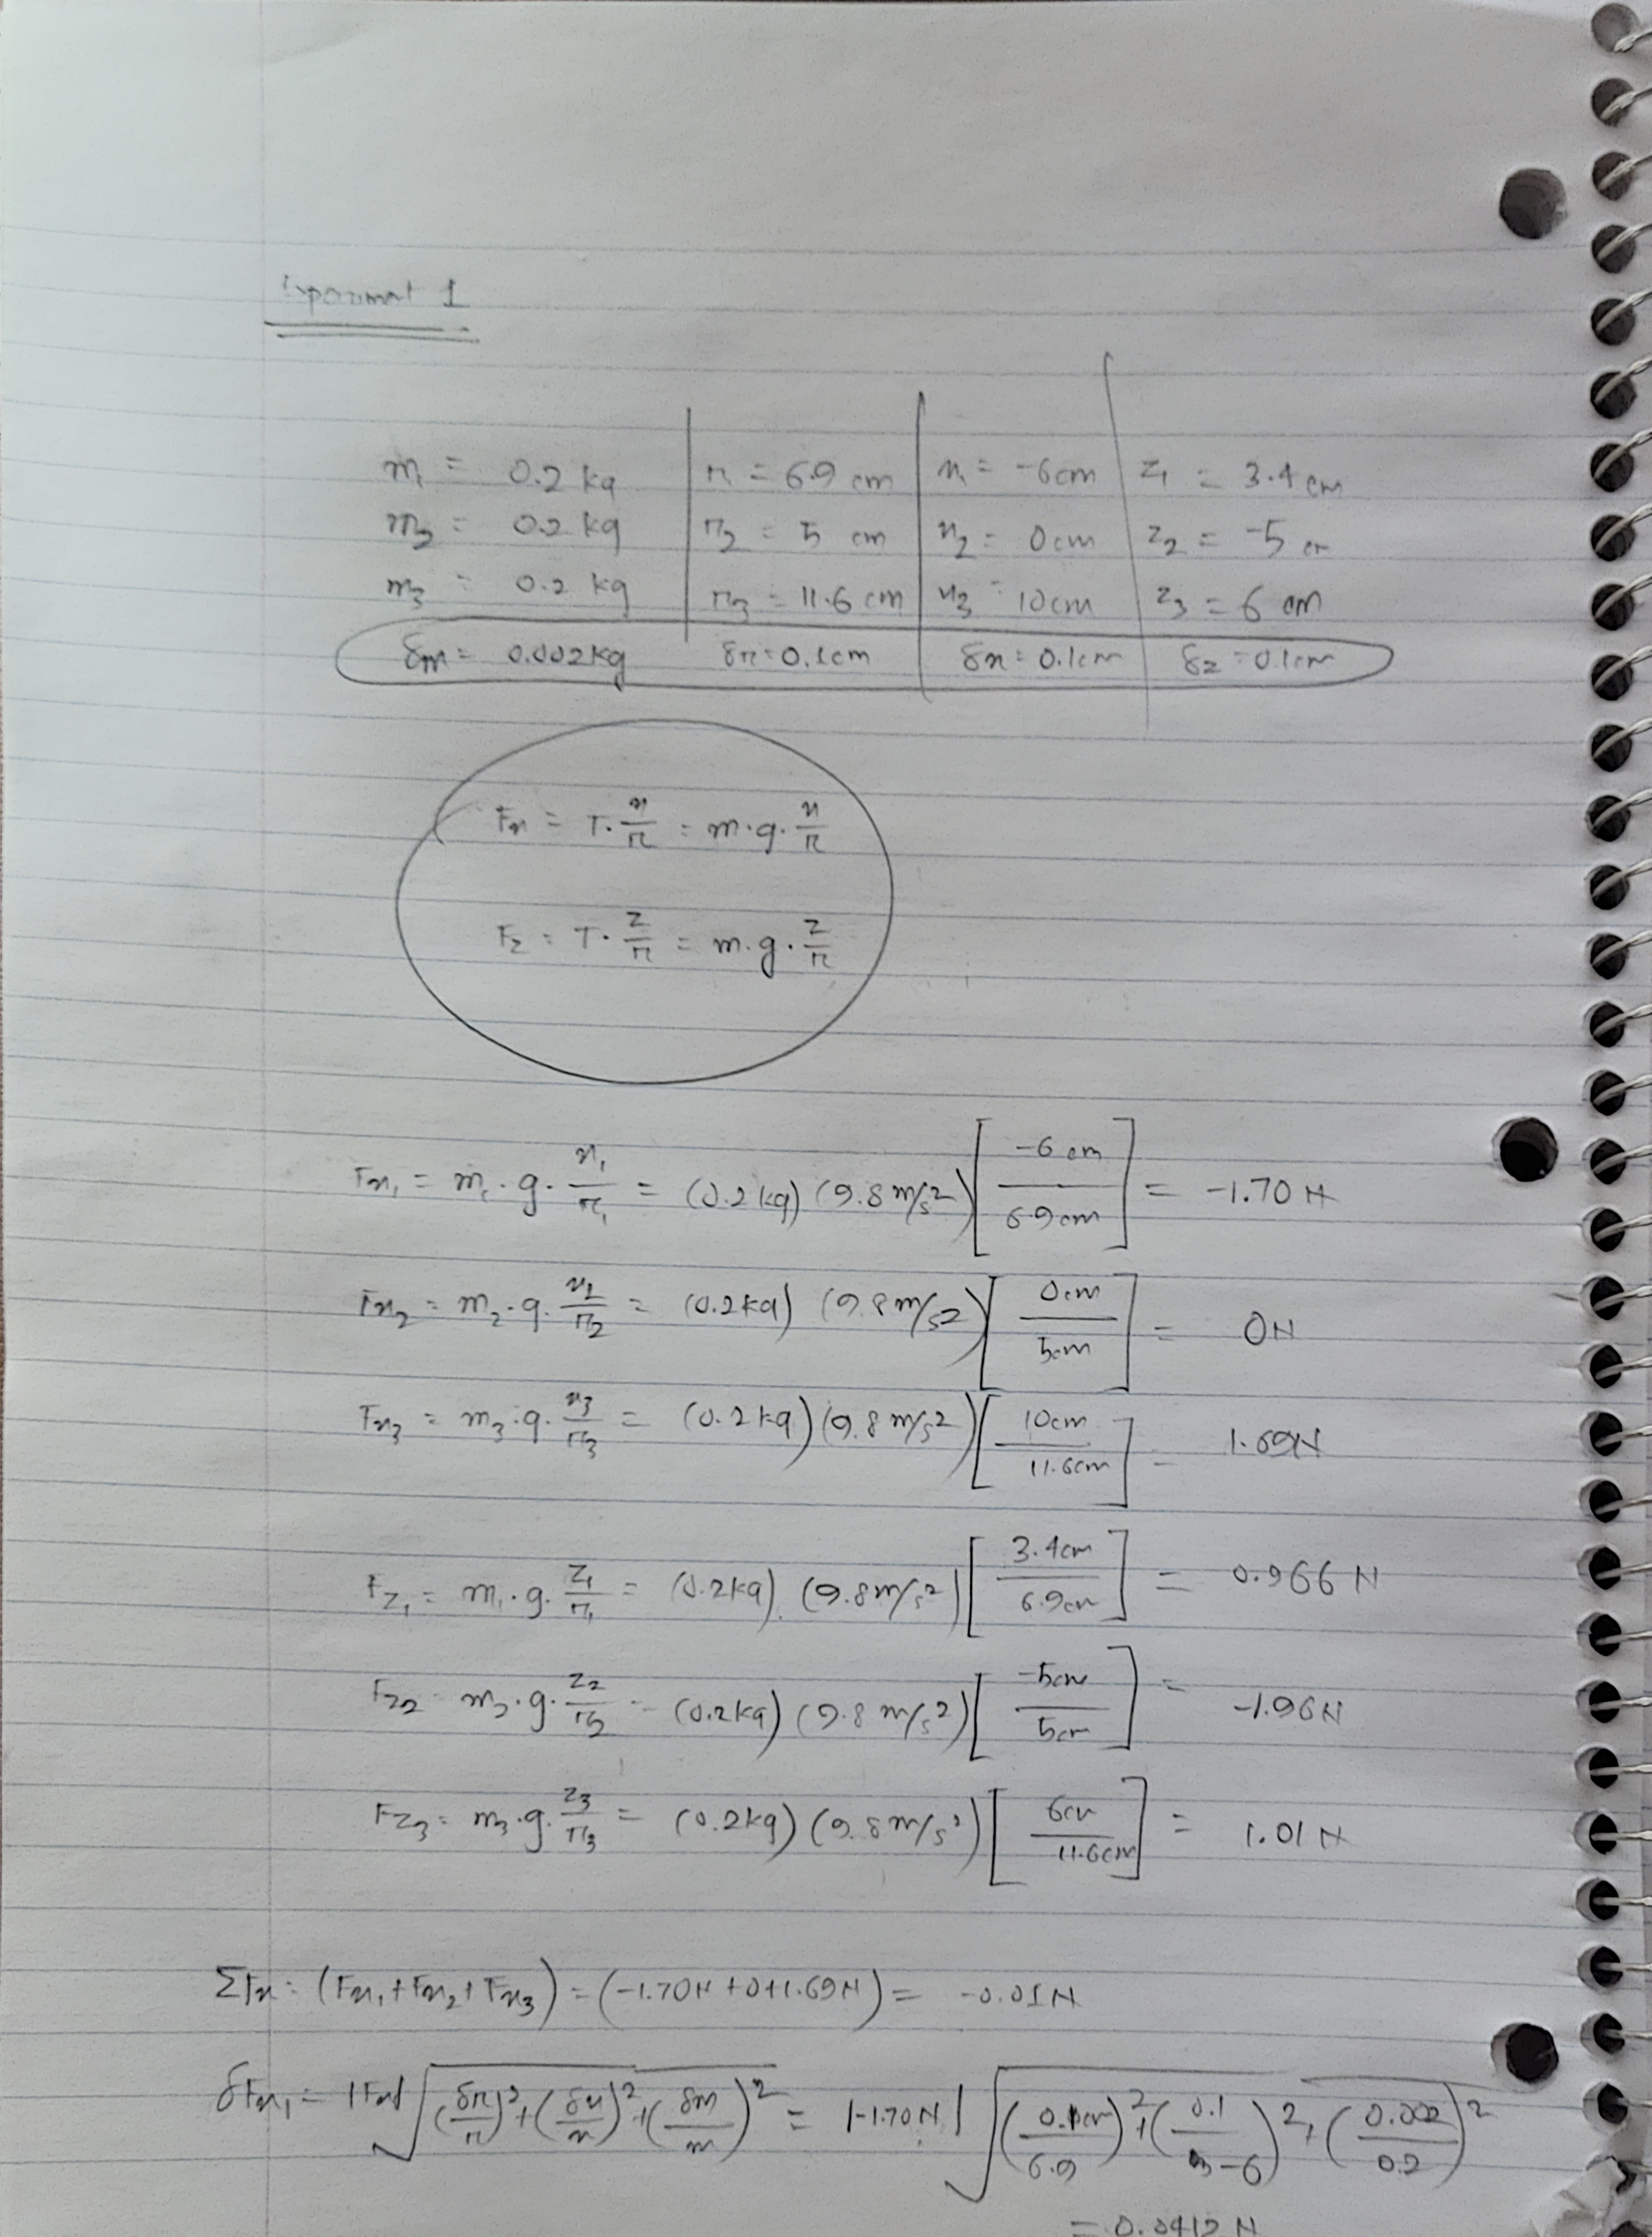 Experiment 1
m₁ = 0.2 kg | r₁ = 6.9 cm | x₁ = -6cm | z₁ = 3.4 cm
m₂ = 0.2 kg | r₂ = 5 cm | x₂ = 0cm | z₂ = -5 cm
m₃ = 0.2 kg | r₃ = 11.6 cm | x₃ = 10cm | z₃ = 6 cm
δm = 0.002kg δr = 0.1cm | δx = 0.1cm | δz = 0.1cm
Fx = T · x/r = m·g· x/r
Fz = T · z/r = m·g· z/r
Fx₁ = m₁·g· x₁/r₁ = (0.2 kg) (9.8 m/s²) [-6 cm / 6.9cm] = -1.70 N
Fx₂ = m₂·g· x₂/r₂ = (0.2kg) (9.8 m/s²) [0cm / 5cm] = 0N
Fx₃ = m₃·g· x₃/r₃ = (0.2 kg) (9.8 m/s²) [10cm / 11.6cm] = 1.69N
Fz₁ = m₁·g· z₁/r₁ = (0.2kg). (9.8m/s²) [3.4cm / 6.9cm] = 0.966 N
Fz₂ = m₂·g· z₂/r₂ = (0.2kg) (9.8 m/s²) [-5cm / 5cm] = -1.96N
Fz₃ = m₃·g· z₃/r₃ = (0.2kg) (9.8 m/s²) [6cm / 11.6cm] = 1.01 N
ΣFx = (Fx₁ + Fx₂ + Fx₃) = (-1.70N + 0 + 1.69N) = -0.01N
δFx₁ = |Fx| √((δr/r)² + (δx/x)² + (δm/m)²) = |-1.70N| √((0.1cm/6.9)² + (0.1/-6)² + (0.002/0.2)²)
= 0.0412 N